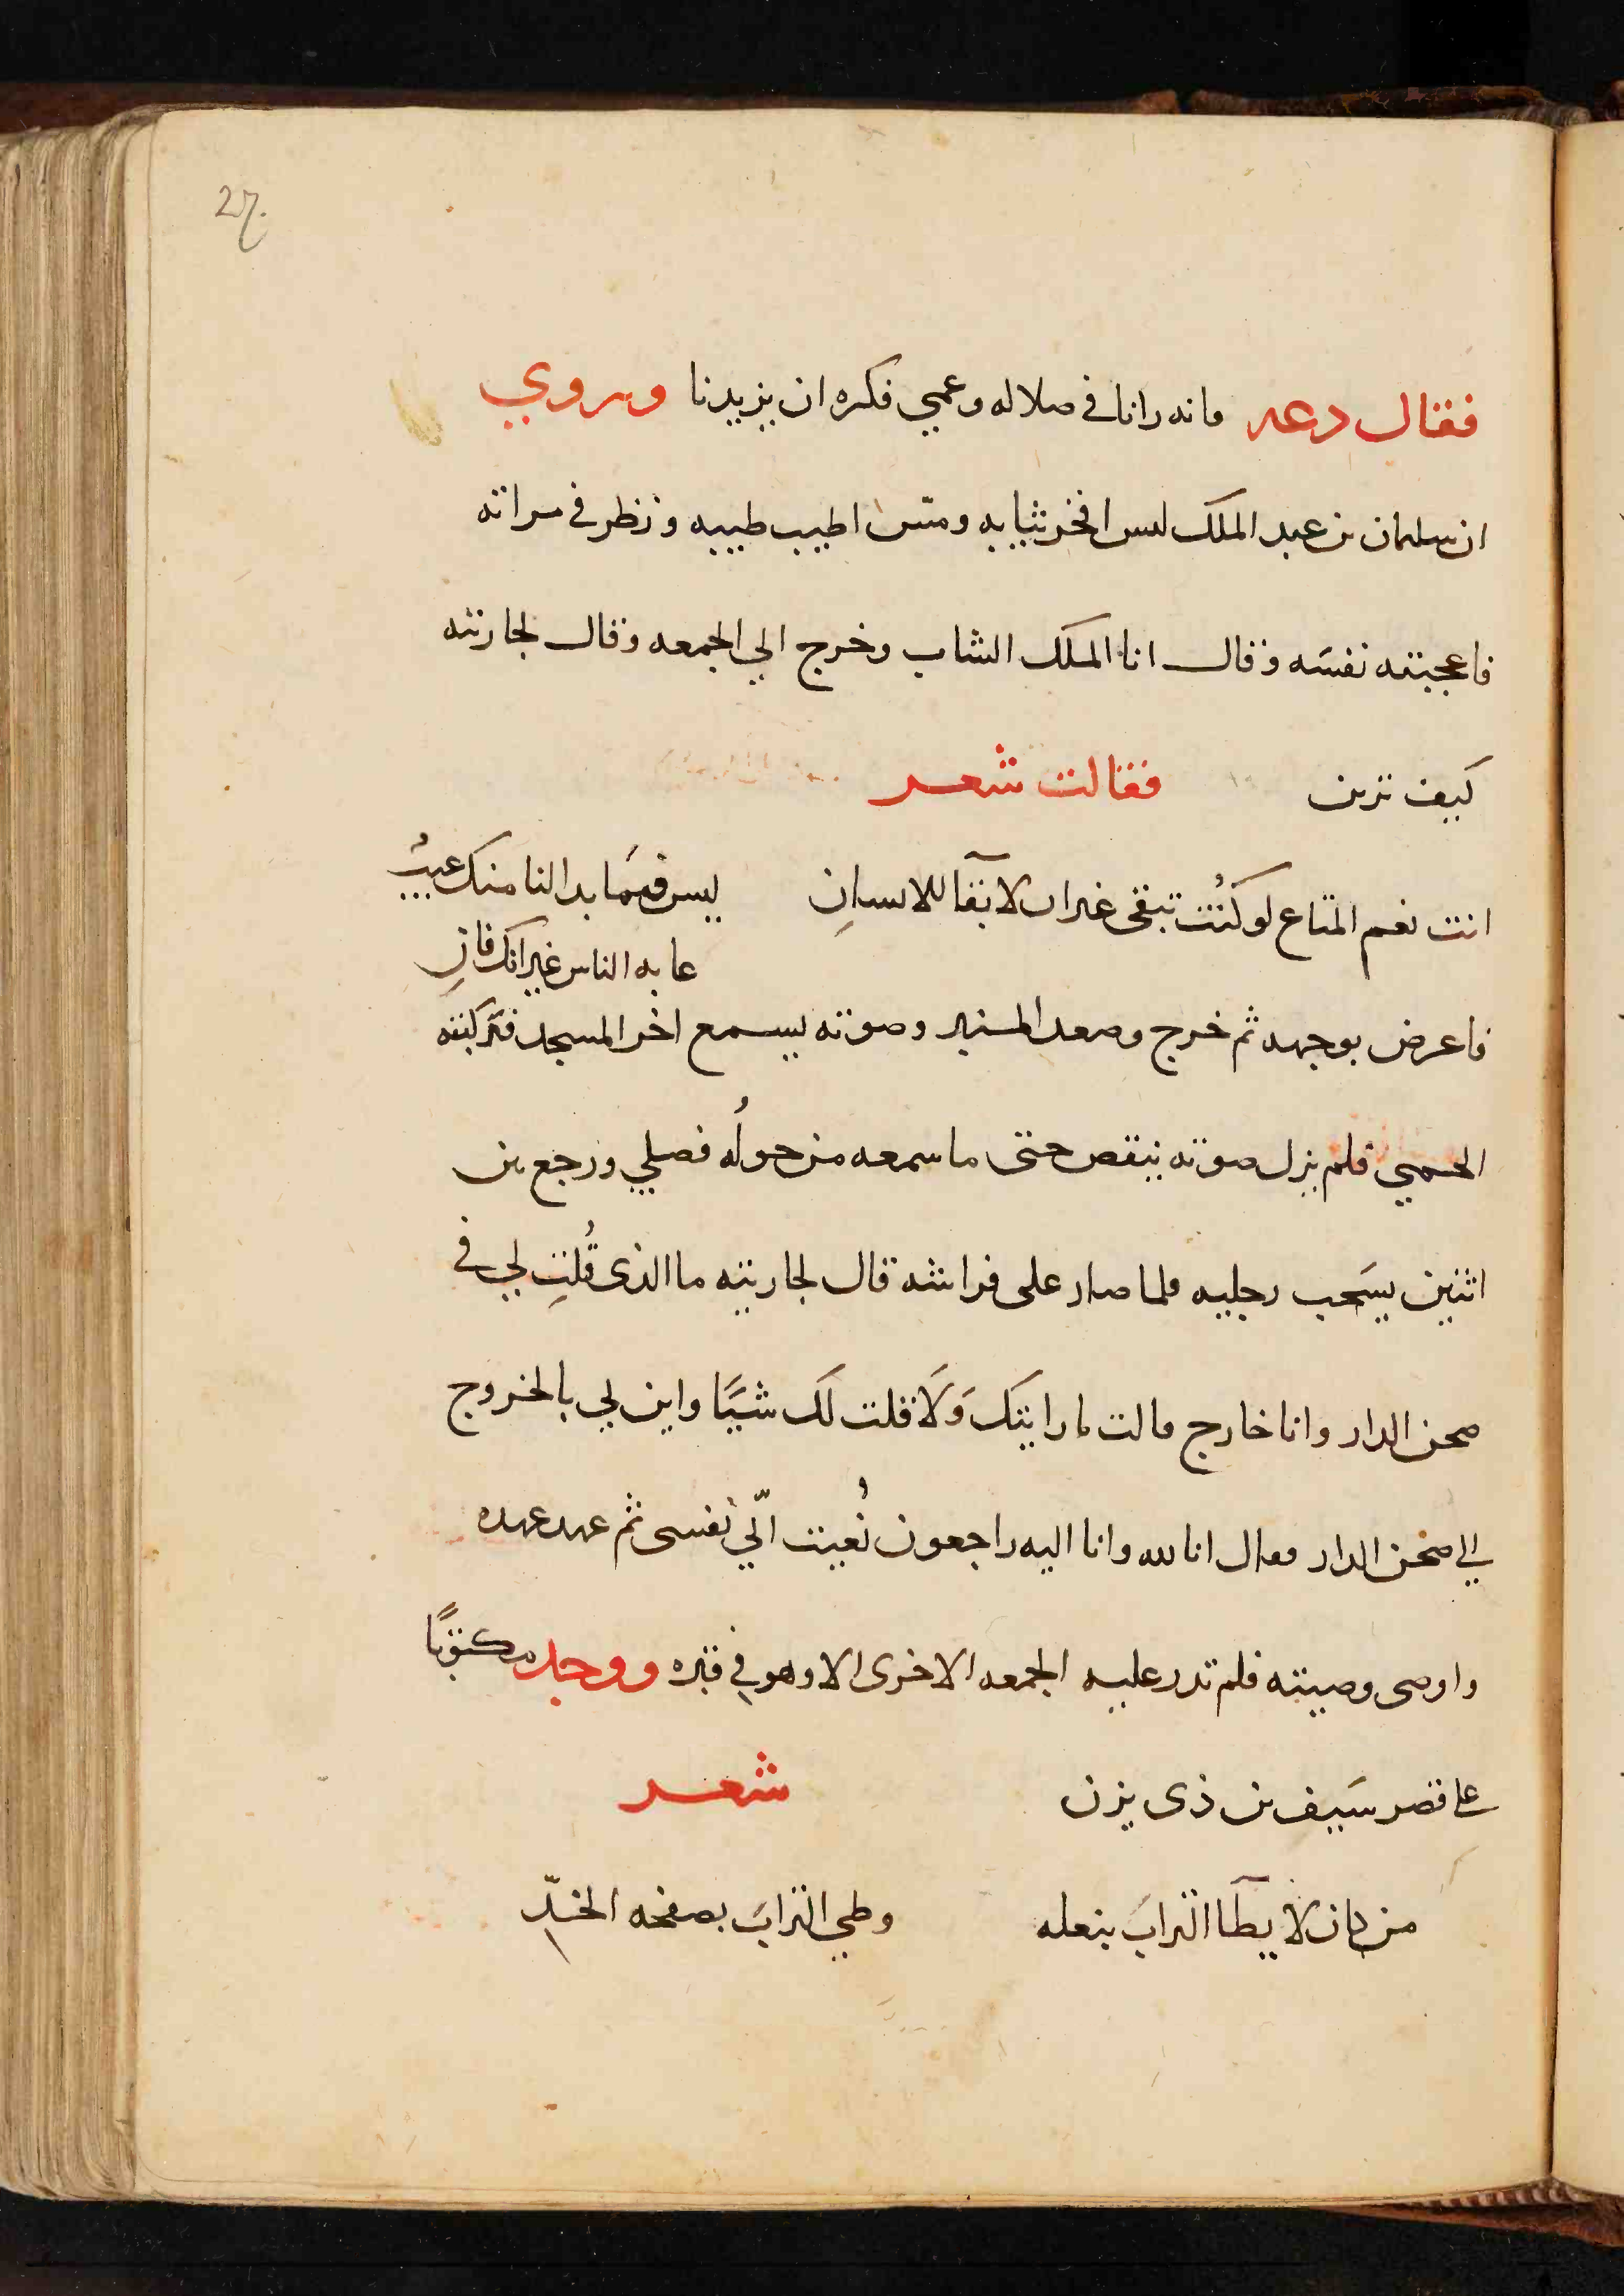 27.
فقال دعه فانه رانا في ضلاله وعمي فكره ان يزيدنا ويروي
ان سليمان بن عبد الملك لبس افخر ثيابه ومس اطيب طيبه ونظر في مراته
فاعجبته نفسَه وقال انا الملك الشاب وخرج الي الجمعه وقال لجاريته
كيف ترين فقالت شعر
انت نعم المتاع لو كُنت تبقى غير ان لا بقآ للانسانِ ليس فيمَا بدا لنا منك عيبُ
عابه الناس غير انك فانِ
فاعرض بوجهه ثم خرج وصعد المنبر وصوته يسمع اخر المسجد فتركبته
الحمي فلم يزل صوته ينقص حتى ما سمعه من حولُه فصلي ورجع بين
اثنين يسَحب رجليه فلما صار على فراشه قال لجاريته ما الذى قُلتِ لي في
صحن الدار وانا خارج قالت ما رايتكَ وَلَا قلت لَك شيَّا واين لي بالخروج
الي صحن الدار فقال انا لله وانا اليه راجعون نُعيت الّي نفسى ثم عهد عهده
واوصى وصيته فلم تدر عليه الجمعه الاخرى الا وهو في قبره ووجد مكتوبًا
على قصر سَيف بن ذى يزن شعر
من كان لا يطآ الترابَ بنعله وطي الترابَ بصفحه الخدِّ